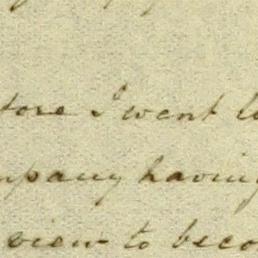 tore I went
mpany having
view to beco